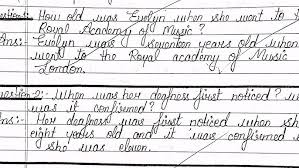 estion:- How old was Evelyn when she went to
Royal Academy of Music?
Ans:- Evelyn was seventeen years old when
went to the Royal academy of Music
London.
uestion-2:- When was her deafness first noticed? W
was it confirmed?
ns:- Her deafness was first noticed when sh
eight years old and it was confirmed w
she was eleven.